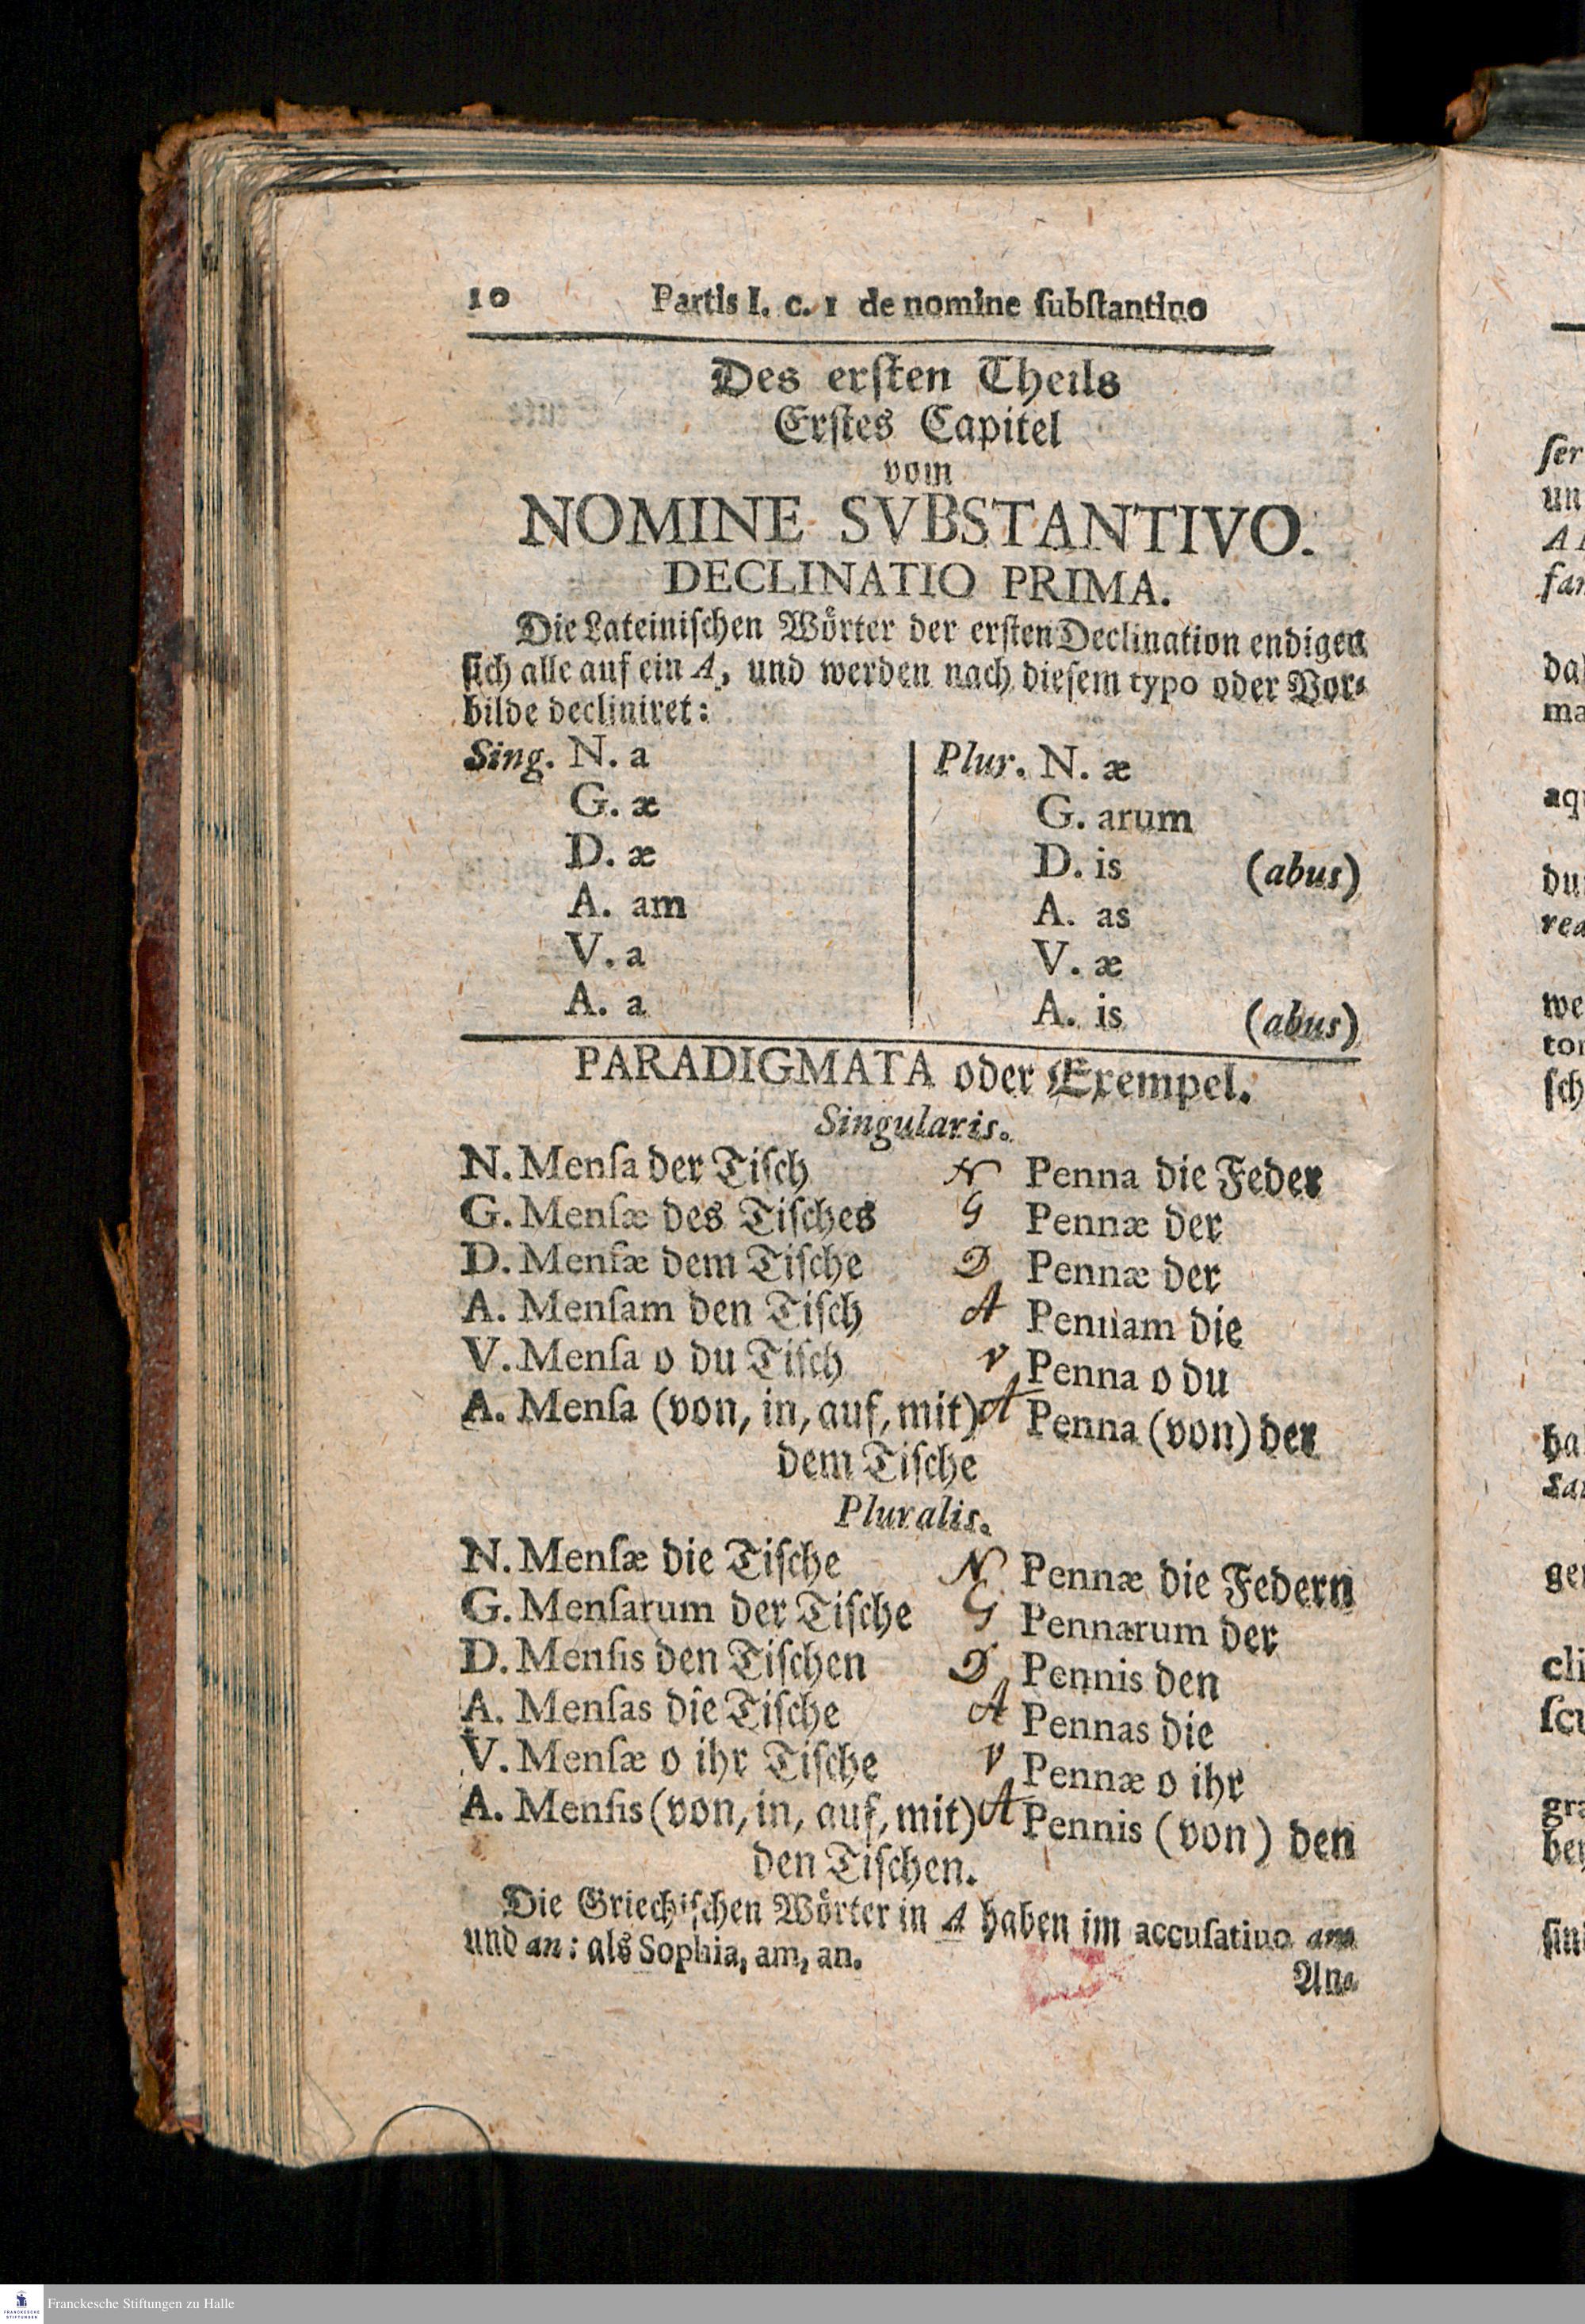 10 Partis I. c. 1 de nomine ſubſtantiuo
Des erſten Theils
Erſtes Capitel
vom
NOMINE SVBSTANTIVO.
DECLINATIO PRIMA.
Die Lateiniſchen Wörter der erſten Declination endigen
ſich alle auf ein A, und werden nach dieſem typo oder Vor⸗
bilde decliniret:
Sing. N. a
G. æ
D. æ
A. am
V. a
A. a
Plur. N. æ
G. arum
D. is (abus)
A. as
V. æ
A. is (abus)
PARADIGMATA oder Exempel.
Singularis.
N. Menſa der Tiſch N Penna die Feder
G. Menſæ des Tiſches G Pennæ der
D. Menſæ dem Tiſche D Pennæ der
A. Menſam den Tiſch A Pennam die
V. Menſa o du Tiſch V Penna o du
A. Menſa (von, in, auf, mit) A Penna (von) der
dem Tiſche
Pluralis.
N. Menſæ die Tiſche N Pennæ die Federn
G. Menſarum der Tiſche G Pennarum der
D. Menſis den Tiſchen D Pennis den
A. Menſas die Tiſche A Pennas die
V. Menſæ o ihr Tiſche V Pennæ o ihr
A. Menſis (von, in, auf, mit) A Pennis (von) den
den Tiſchen.
Die Griechiſchen Wörter in A haben im accuſatiuo am
und an: als Sophia, am, an.
Un⸗
ſer
un
da
ma
aq
du
we
ha
ge
cli
ſcu
gra
be
ſin
Franckesche Stiftungen zu Halle